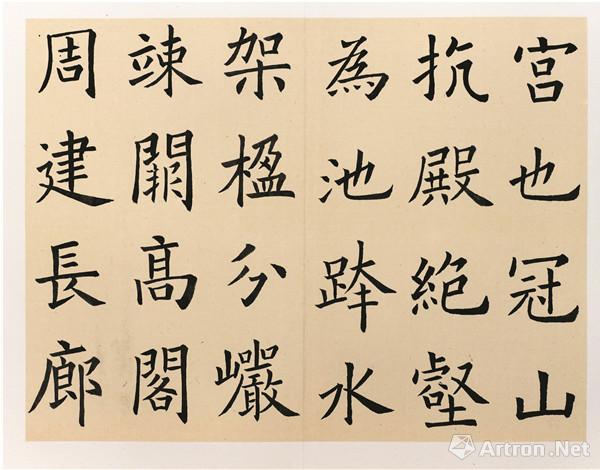 宮也冠山
抗殿絶壑
為池跨水
架楹分巗
竦闕高閣
周建長廊
Artron.Net